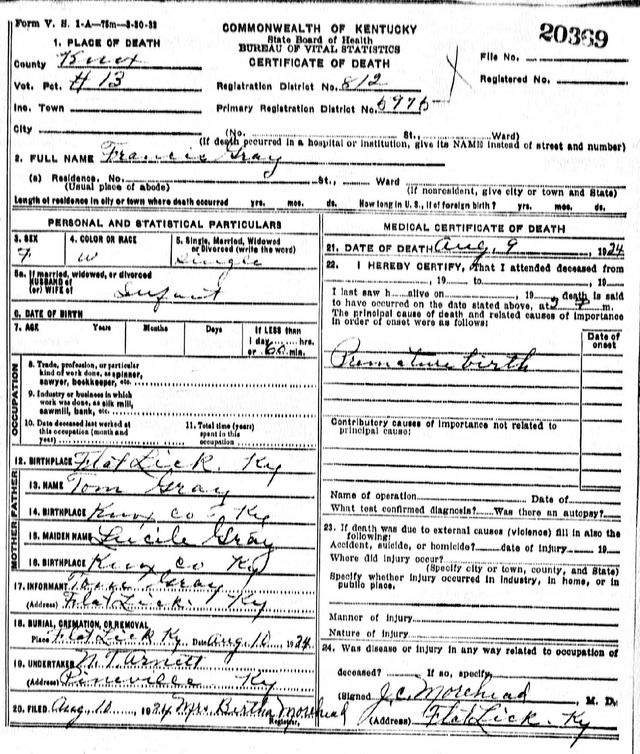 Form V. S. 1-A—75m—3-30-32
COMMONWEALTH OF KENTUCKY
State Board of Health
BUREAU OF VITAL STATISTICS
CERTIFICATE OF DEATH
20369
1. PLACE OF DEATH
County Knox
Vot. Pct. #13
Inc. Town
City
Registration District No. 812
Primary Registration District No.
File No.
Registered No.
(No. St., Ward)
(If death occurred in a hospital or institution, give its NAME instead of street and number)
2. FULL NAME Francis Gray
(a) Residence. No. St., Ward
(Usual place of abode) (If nonresident, give city or town and State)
Length of residence in city or town where death occurred yrs. mos. ds. How long in U. S., if of foreign birth? yrs. mos. ds.
PERSONAL AND STATISTICAL PARTICULARS
3. SEX
F
4. COLOR OR RACE
W
5. Single, Married, Widowed
or Divorced (write the word)
Single
5a. If married, widowed, or divorced
HUSBAND of
(or) WIFE of
Infant
6. DATE OF BIRTH
7. AGE Years Months Days If LESS than
1 day, hrs.
or 60 min.
OCCUPATION
8. Trade, profession, or particular
kind of work done, as spinner,
sawyer, bookkeeper, etc.
9. Industry or business in which
work was done, as silk mill,
sawmill, bank, etc.
10. Date deceased last worked at
this occupation (month and
year)
11. Total time (years)
spent in this
occupation
12. BIRTHPLACE Flat Lick Ky
FATHER
13. NAME Tom Gray
14. BIRTHPLACE Knox Co Ky
MOTHER
15. MAIDEN NAME Lucile Gray
16. BIRTHPLACE Knox Co Ky
17. INFORMANT Tom Gray
(Address) Flat Lick Ky
18. BURIAL, CREMATION, OR REMOVAL
Place Flat Lick Ky Date Aug 10, 1934
19. UNDERTAKER N. T. Arnett
(Address) Pineville Ky
20. FILED Aug 10, 1934 Mrs Bertha Morehead
Registrar.
MEDICAL CERTIFICATE OF DEATH
21. DATE OF DEATH Aug 9, 1934
22. I HEREBY CERTIFY, That I attended deceased from
, 19 to , 19
I last saw h alive on , 19 death is said
to have occurred on the date stated above, at m.
The principal cause of death and related causes of importance
in order of onset were as follows:
Date of
onset
Premature birth
Contributory causes of importance not related to
principal cause:
Name of operation Date of
What test confirmed diagnosis? Was there an autopsy?
23. If death was due to external causes (violence) fill in also the
following:
Accident, suicide, or homicide? date of injury 19
Where did injury occur?
(Specify city or town, county, and State)
Specify whether injury occurred in industry, in home, or in
public place.
Manner of injury
Nature of injury
24. Was disease or injury in any way related to occupation of
deceased? If so, specify
(Signed J. C. Morehead, M. D.
(Address) Flat Lick. Ky